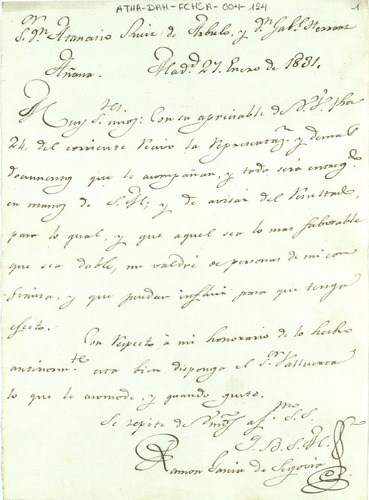 ATHA-DAH-FCHSA-001-124
1
S.res Dn Atanasio Ruiz de Arbulo, y Dn Gab.l Herran
Añana. Mad.d 27 Enero de 1831.
Muy S.res mios: Con su apreciable de Vs. fha
24 del corriente recivo la representaz.n y demas
documentos que le acompañan, y todo será entreg.do
en manos de S. M., y de avisar del resultado,
para lo qual, y que aquel sea lo mas faborable
que sea dable, me valdré de personas de mi con
fianza, y que puedan influir para que tenga
efecto.
Con respecto á mi honorario de lo hecho
anteriorm.te está bien disponga el S.r
lo que le acomode, y quando guste.
Se repite de Vs. mas af.mo S. S.
Q. B. S. M.
Ramon Garcia de Segovia